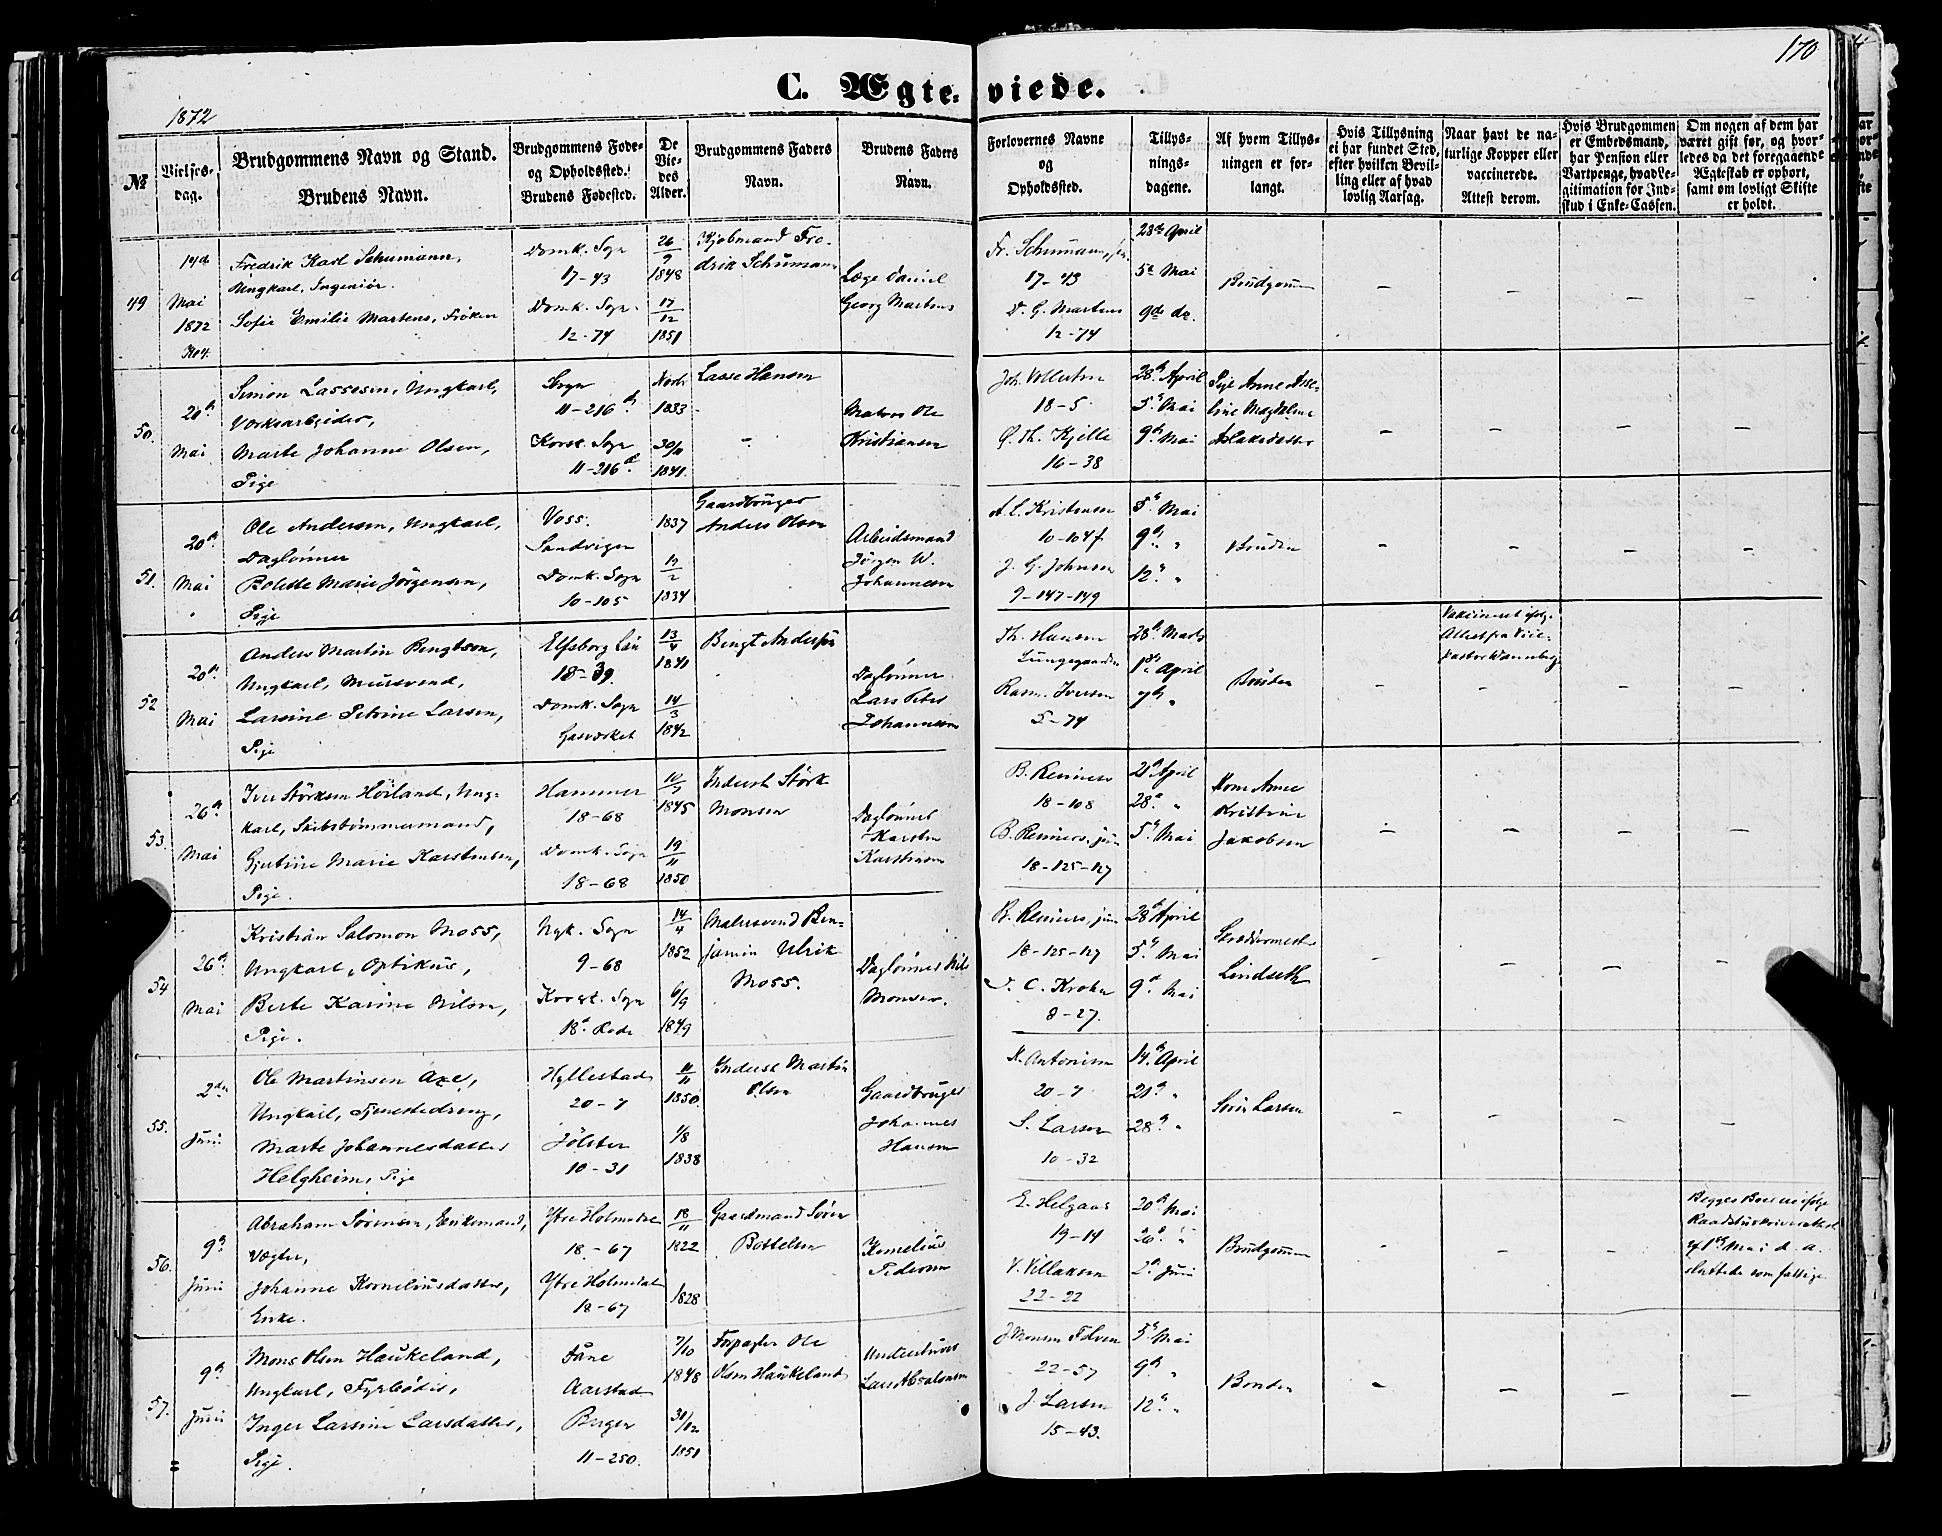 170
C. Ægteviede.
1872
№
Vielses-
dag.
Brudgommens Navn og Stand.
Brudens Navn.
Brudgommens Føde-
og Opholdssted.
Brudens Fødested.
De
Vie-
des
Alder.
Brudgommens Faders
Navn.
Brudens Faders
Navn.
Forlovernes Navne
og
Opholdssted.
Tillys-
nings-
dagene.
Af hvem Tillys-
ningen er for-
langt.
Hvis Tillysning
ei har fundet Sted,
efter hvilken Bevil-
ling eller af hvad
lovlig Aarsag.
Naar havt de na-
turlige Kopper eller
vaccinerede.
Attest derom.
Hvis Brudgommen
er Embedsmand,
har Pension eller
Vartpenge, hvad Le-
gitimation for Ind-
skud i Enke-Cassen.
Om nogen af dem har
været gift før, og hvor-
ledes da det foregaaende
Ægteskab er ophørt,
samt om lovligt Skifte
er holdt.
49
14de
Mai
1872
Fredrik Karl Schumann,
Ungkarl, Ingeniør.
Sofie Emilie Martens, Frøken
Domk. Sogn
17-43
Domk. Sogn.
12-74
26/9
1848
17/12
1851
Kjøbmand Fre-
drik Schumann
Læge Daniel
Georg Martens
Fr. Schumann,
17-43
D. G. Martens
12-74
28de April
5te Mai
9de do.
Brudgommen
50.
20de
Mai
Simon Lassesen, Ungkarl,
Værksarbeider,
Marte Johanne Olsen,
Pige
Sogn
11-216
Korsk. Sogn
11-216
1833
30/11
1841.
Lasse Hansen
Matros Ole
Kristiansen
Joh. Vollertsen
18-5.
Ø. Th. Kjelle
16-38
28de April
5te Mai
9de Mai
Pige Anne
Magdalene
Aslaksdatter
51.
20de
Mai
Ole Andersen, Ungkarl,
Daglønner
Bolette Marie Jørgensen,
Pige
Voss.
Sandvigen
Domk. Sogn
10-105
1837
1834
Gaardbruger
Anders Olsen
Arbeidsmand
Jørgen W.
Johannesen
A. C. Kristensen
10-104f
J. G. Johnsen
9-147-149
5te Mai
9de "
12te "
Bruden
52
20de
Mai
Anders Martin Bengtson,
Ungkarl, Mursvend,
Larsine Petrine Larsen,
Pige
Elfsborg Län
18-39.
Domk. Sogn
Gasværket
13/4
1841
14/3
1842
Bengt Anderson
Daglønner
Lars Peter
Johannesen
Th. Hansen
Lungegaarden
Rasm. Iversen
5-74
28de Marts
1ste April
7de "
Bruden
Attest fra Vice-
pastor
53.
26de
Mai
Iver Størksen Høiland, Ung-
karl, Skibstømmermand,
Gjertine Marie Karstensen,
Pige.
Hammer
18-68
Domk. Sogn
18-68
1845
19/11
1850
Inderst Størk
Monsen
Daglønner
Karsten
Karstensen
B. Reimers
18-108
B. Reimers, jun
18-125-127
21de April
28de "
5te Mai
Kone Anne
Kristine
Jakobsen
54
26de
Mai
Kristian Salomon Moss,
Ungkarl, Optikus,
Berte Karine Nilsen,
Pige.
Nyk. Sogn
9-68
Korsk. Sogn
18de Rode
14/4
1852
6/9
1849
Malersvend Ben-
jamin Ulrik
Moss.
Daglønner Nils
Monsen.
B. Reimers, jun
18-125-127
C. Krohn
8-27.
28de April
5te Mai
9de Mai
Skræddermester
Lindseth
55.
2den
Juni
Ole Martinsen Axe,
Ungkarl, Tjenestedreng,
Marte Johannesdatter
Helgheim, Pige
Hyllestad
20-7
Jølster
10-31
11/11
1850.
1/8
1838
Inderst Martin
Olsen
Gaardbruger
Johannes
Hansen
Antonisen
20-7
S. Larsen
10-32
14de April
21de "
28de "
Søren Larsen
56.
9de
Juni
Abraham Sørensen, Enkemand,
Vægter,
Johanne Korneliusdatter,
Enke.
Ytre Holmedal
18.-67
Ytre Holmedal
18-67
18/11
1822
1828
Gaardmand Søren
Bottelsen
Kornelius
Pedersen
E. Helgaas
19-14
V. Villaksen
22-22
20de Mai
26de "
2den Juni
Brudgommen
Begges Boer ifølge
Mai d. a.
sluttede som fattige
57.
9de
Juni
Mons Olsen Haukeland,
Ungkarl, Fyrbøder,
Inger Larsine Larsdatter,
Pige.
Fane
Aarstad
Bergen
11-250.
7/10
1848
31/12
1851
Forpagter Ole
Olsen Haukeland
Lars Absalonsen
J. Monsen Tolven
22-57
J. Larsen
15-43.
5te Mai
9de "
12te "
Bruden